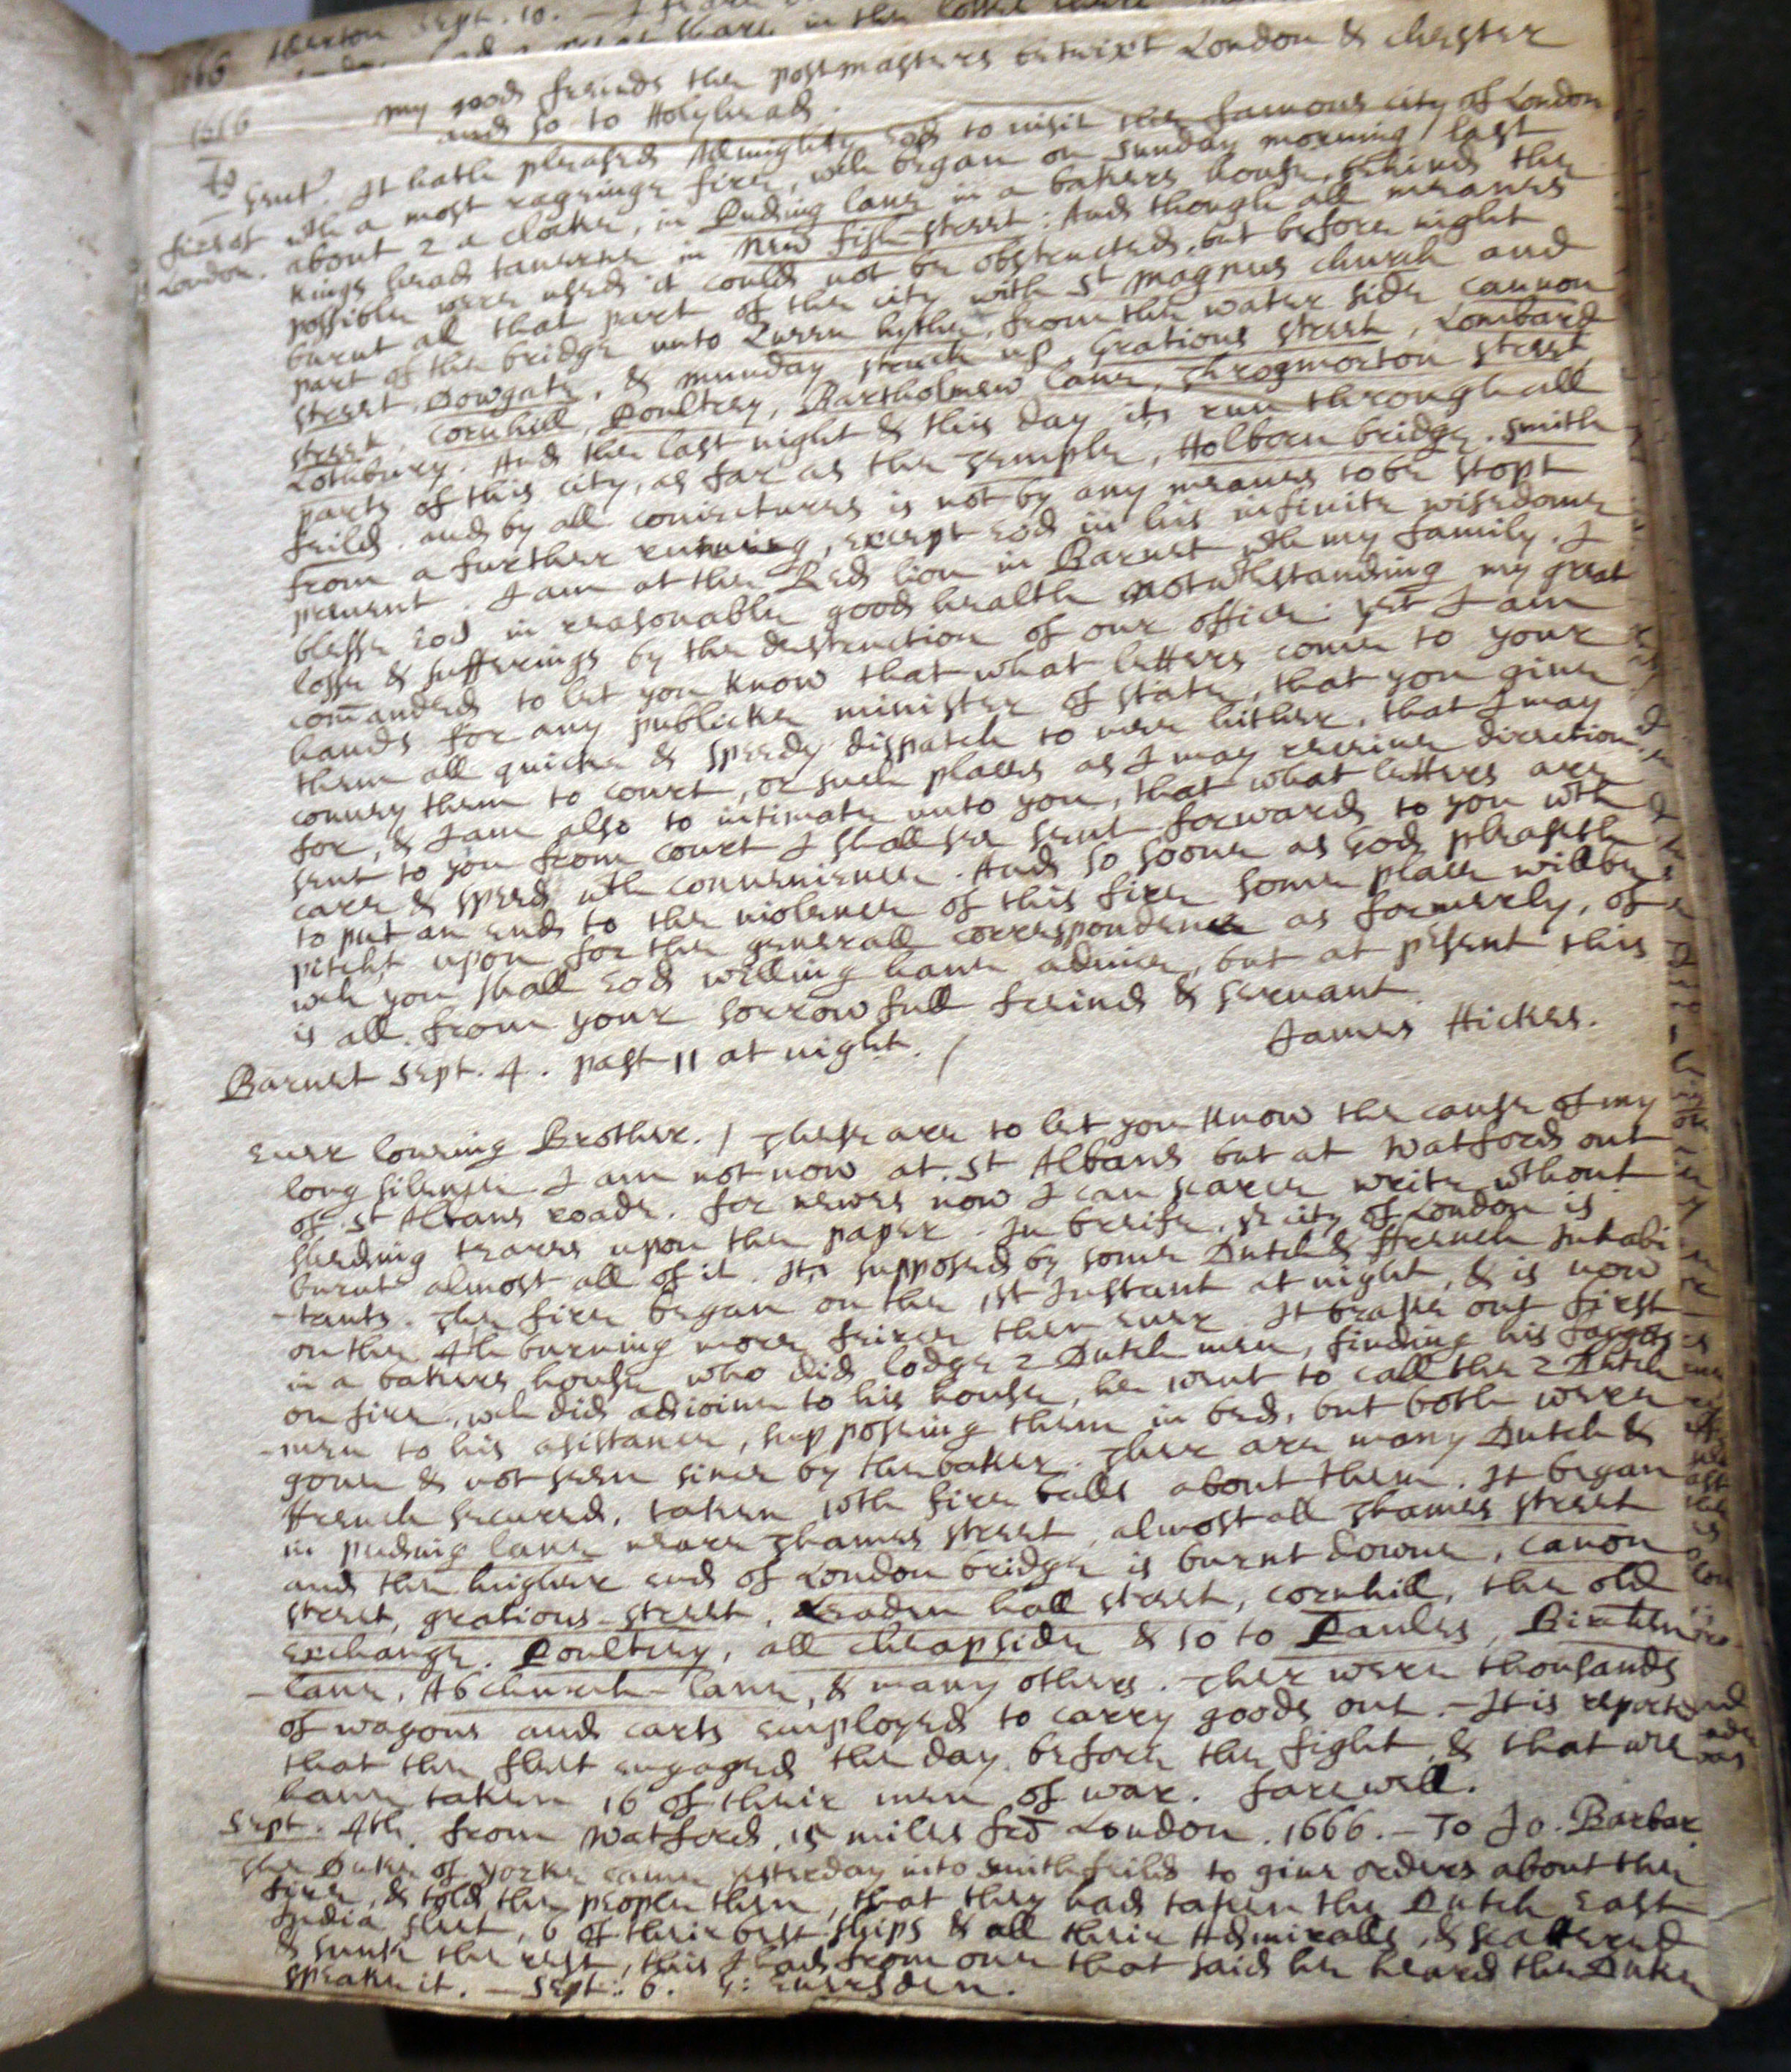 1666
my good freinds the postmasters betwixt London & Chester
and so to Holyhead.
fire of
London.
Gent. It hath pleased Almighty God to visit the famous city of London
wth a most rageinge fire, wch began on Sunday morning last
about 2 a clocke, in Puding lane in a bakers house, behind the
Kings head taverne in New fish-street. And though all meanes
possible were used it could not be obstructed, but before night
burnt al that part of the city with St Magnus church and
part of the bridge unto Queen hythe, from the water side Cannon
street, Dowgate, & munday struck up, Gratious street, Lombard
street, Cornhill, Poultrey, Bartholmew lane, Throgmorton street,
Lothbury. And the last night & this day its run through all
parts of this city, as far as the Temple, Holborn bridge, Smith
feild. and by all coniectures is not by any meanes to be stopt
from a further running, except God in his infinite wisedome
prevent. I am at the Red lion in Barnet wth my family. I
blesse God in reasonable good health notwthstanding my great
losse & sufferings by the destruction of our office. yet I am
com̄anded to let you know that what letters come to your
hands for any publicke minister of state, that you give
them all quicke & speedy dispatch to mee hither, that I may
convey them to court, or such places as I may receive direction
for, & I am also to intimate unto you, that what letters are
sent to you from court I shall see sent forwards to you wth
care & speed wth convenience. And so soone as God pleaseth
to put an end to the violence of this fire some place willbe
pitcht upon for the generall correspondence as formerly, of
wch you shall God willing have advice, but at present this
is all from your sorrowfull freind & servant.
James Hickes.
Barnet Sept. 4. past 11 at night. /
Ever loveing Brother. / These are to let you know the cause of my
long silence I am not now at St Albans but at Watford out
of St Albans roade. for newes now I can scarce write wthout
shedding teares upon the paper. In breife, ye city of London is
burnt almost all of it. Its supposed by some Dutch & ffrench Inhabi
-tants. The fire began on the 1st Instant at night, & is now
on the 4th burning more feirce then ever. It brake out first
in a bakers house who did lodge 2 Dutch men, finding his faggots
on fire, wch did adioine to his house, he went to call the 2 Dutch
-men to his asistance, supposeing them in bed, but both were
gone & not seen since by the baker. Ther are many Dutch &
ffrench secured, taken wth fire balls about them. It began
in puding lane neare Thames street, almost all Thames street
and the higher end of London bridge is burnt downe, Canon
street, gratious-street, Leaden hall street, cornhill, the old
exchange. Poultrey, all cheapside & so to Paules, Birchen
-lane, Abchurch-lane, & many others. Ther were thousands
of wagons and carts employed to carry goods out. - It is reported
that the fleet engaged the day before the fight, & that wee
have taken 16 of their men of war. farewell.
Sept. 4th. from Watford, 15 miles frō London. 1666. - To Jo. Barbar.
The Duke of Yorke came yesterday into Smithfeild to give orders about the
fire, & told the people then, that they had taken the Dutch East
India fleet, 6 of their best ships & all their Admiralls, & scattered
& sunk the rest, this I had from one that said he heard the Duke
speake it. - Sept: 6. Eversden.